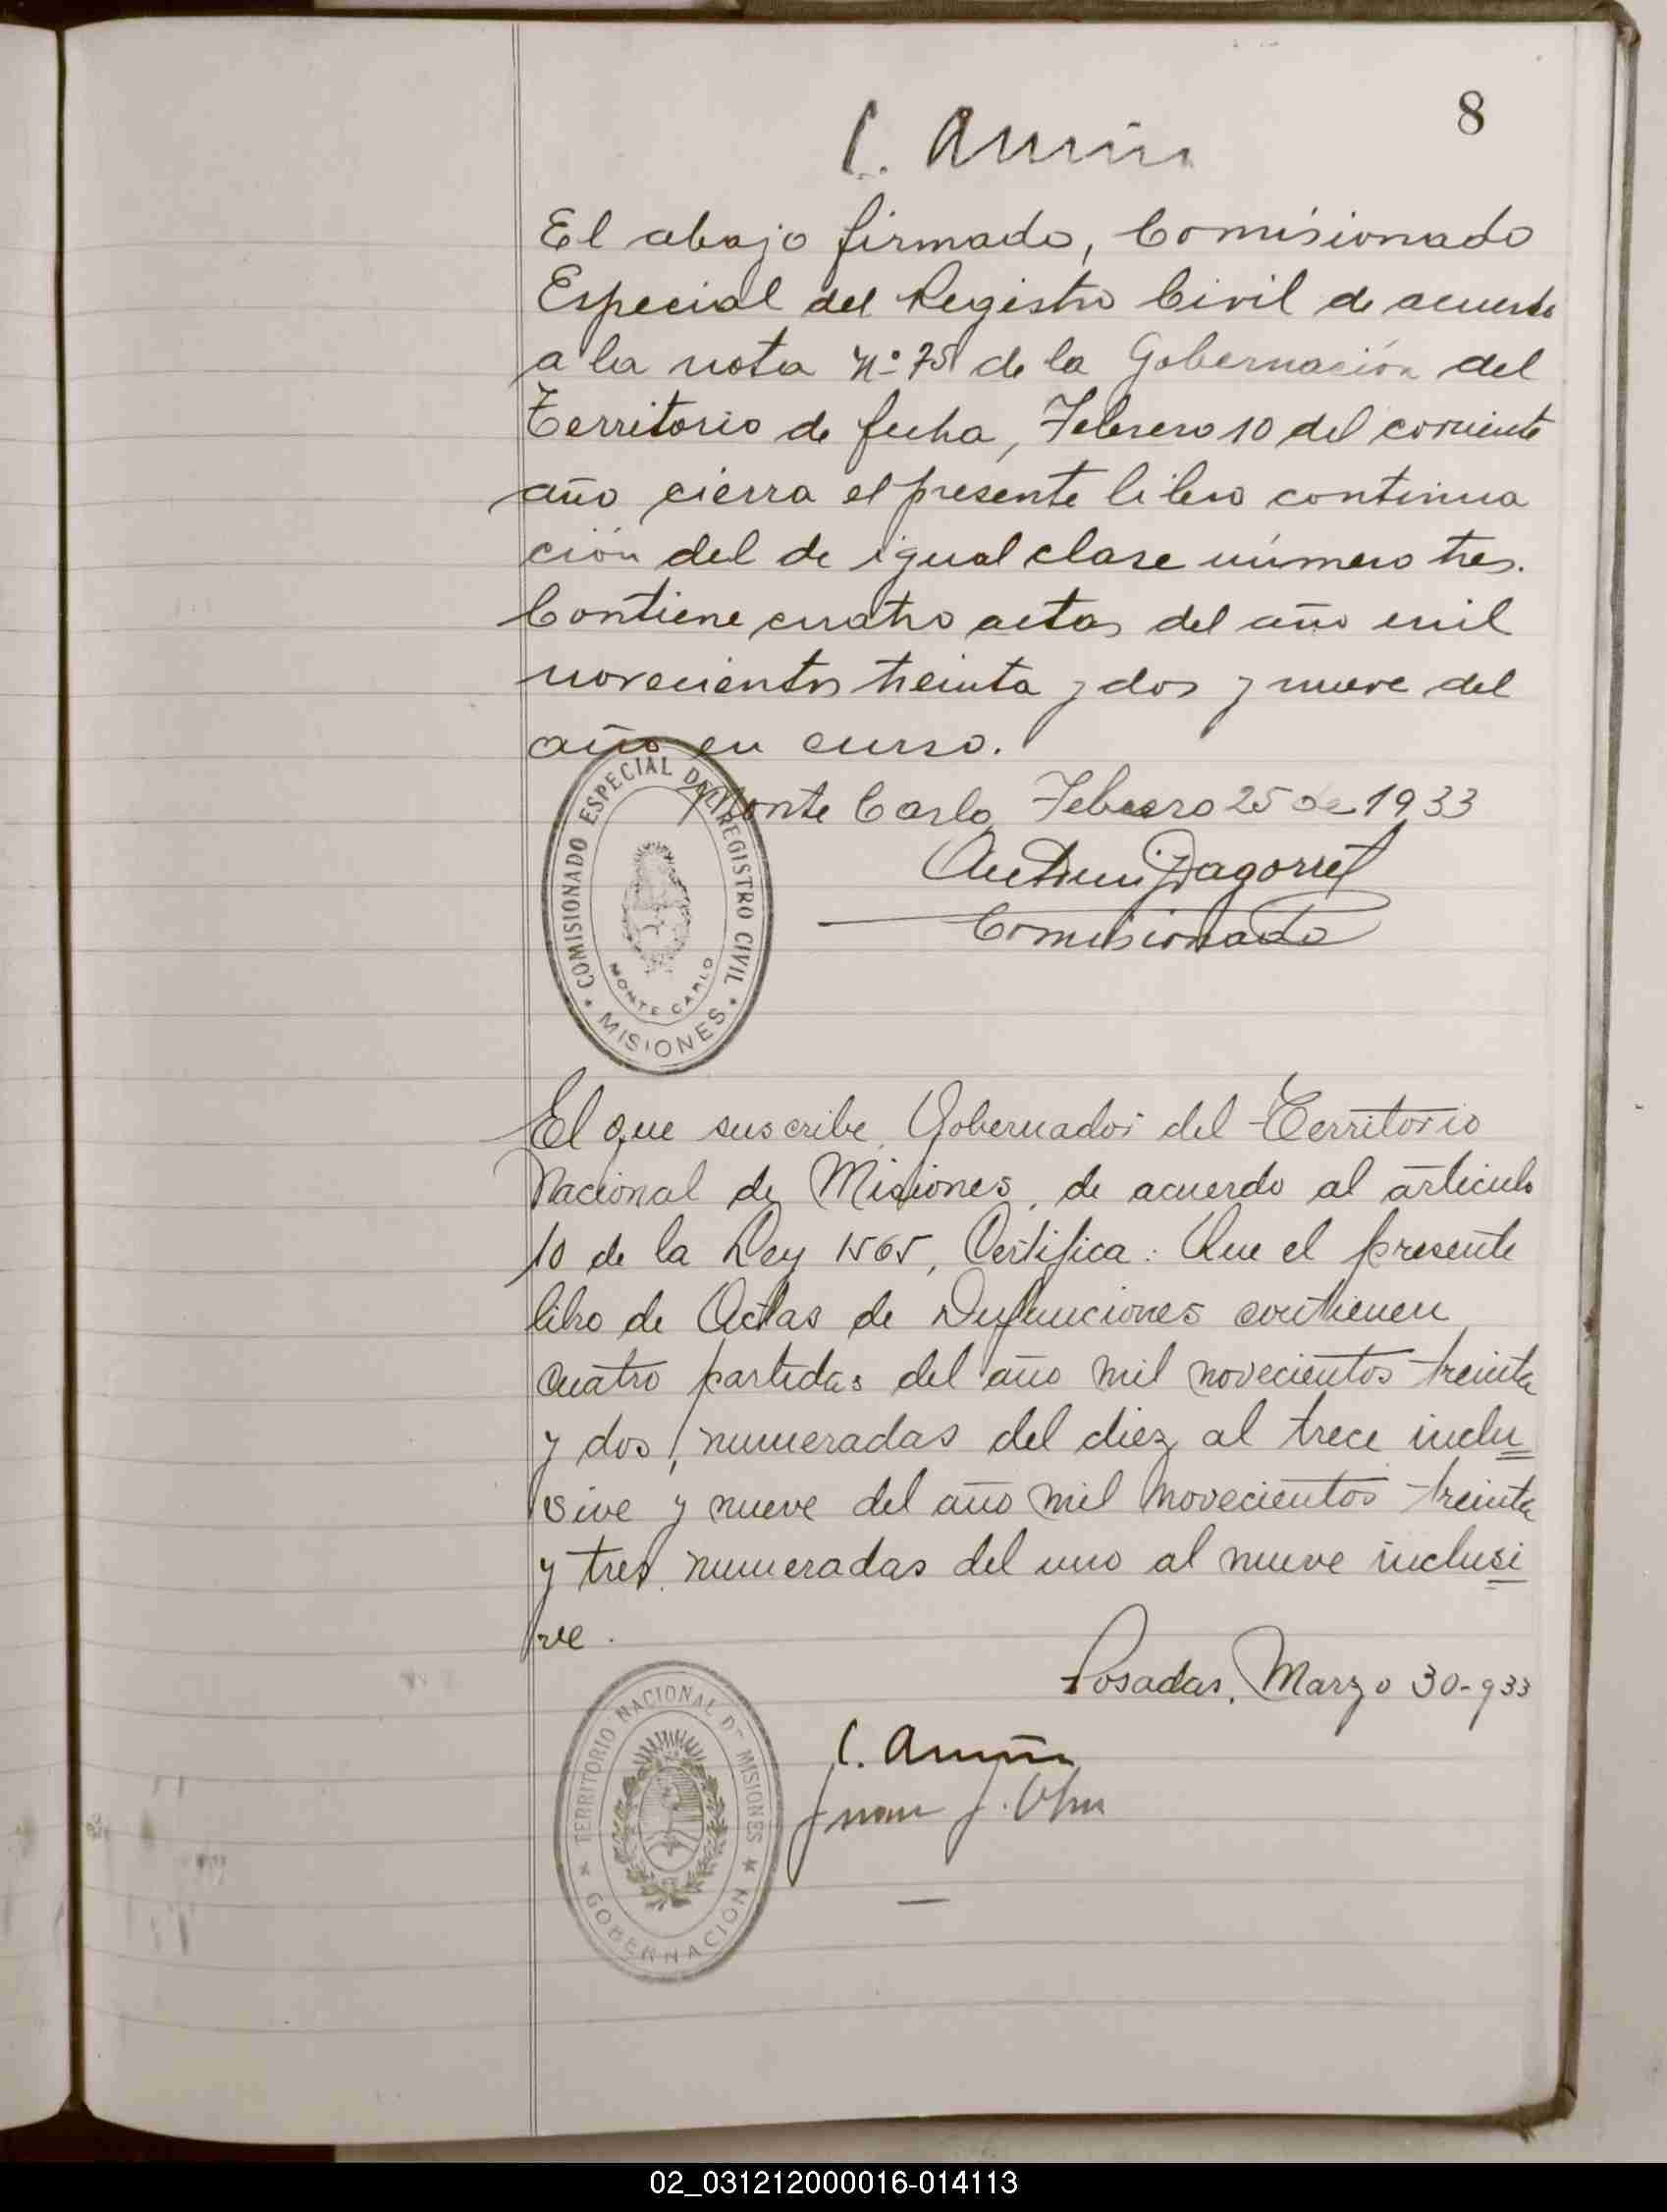 8
El abajo firmado, Comisionado
Especial del Registro Civil de acuerdo
a la nota Nº 75 de la Gobernación del
Territorio de fecha, Febrero 10 del corriente
año cierra el presente libro continua
ción del de igual clase número tres.
Contiene cuatro actas del año mil
novecientos treinta y dos y nueve del
año en curso.
Monte Carlo Febrero 25 de 1933
Comisionado
COMISIONADO ESPECIAL DEL REGISTRO CIVIL
MONTE CARLO
MISIONES
El que suscribe, Gobernador del Territorio
Nacional de Misiones, de acuerdo al articulo
10 de la Ley 1565, Certifica: Que el presente
libro de Actas de Defunciones contienen
cuatro partidas del año mil novecientos treinta
y dos, numeradas del diez al trece inclu
sive y nueve del año mil novecientos treinta
y tres, numeradas del uno al nueve inclusi
ve.
Posadas, Marzo 30-933
TERRITORIO NACIONAL DE MISIONES
GOBERNACION
02_031212000016-014113